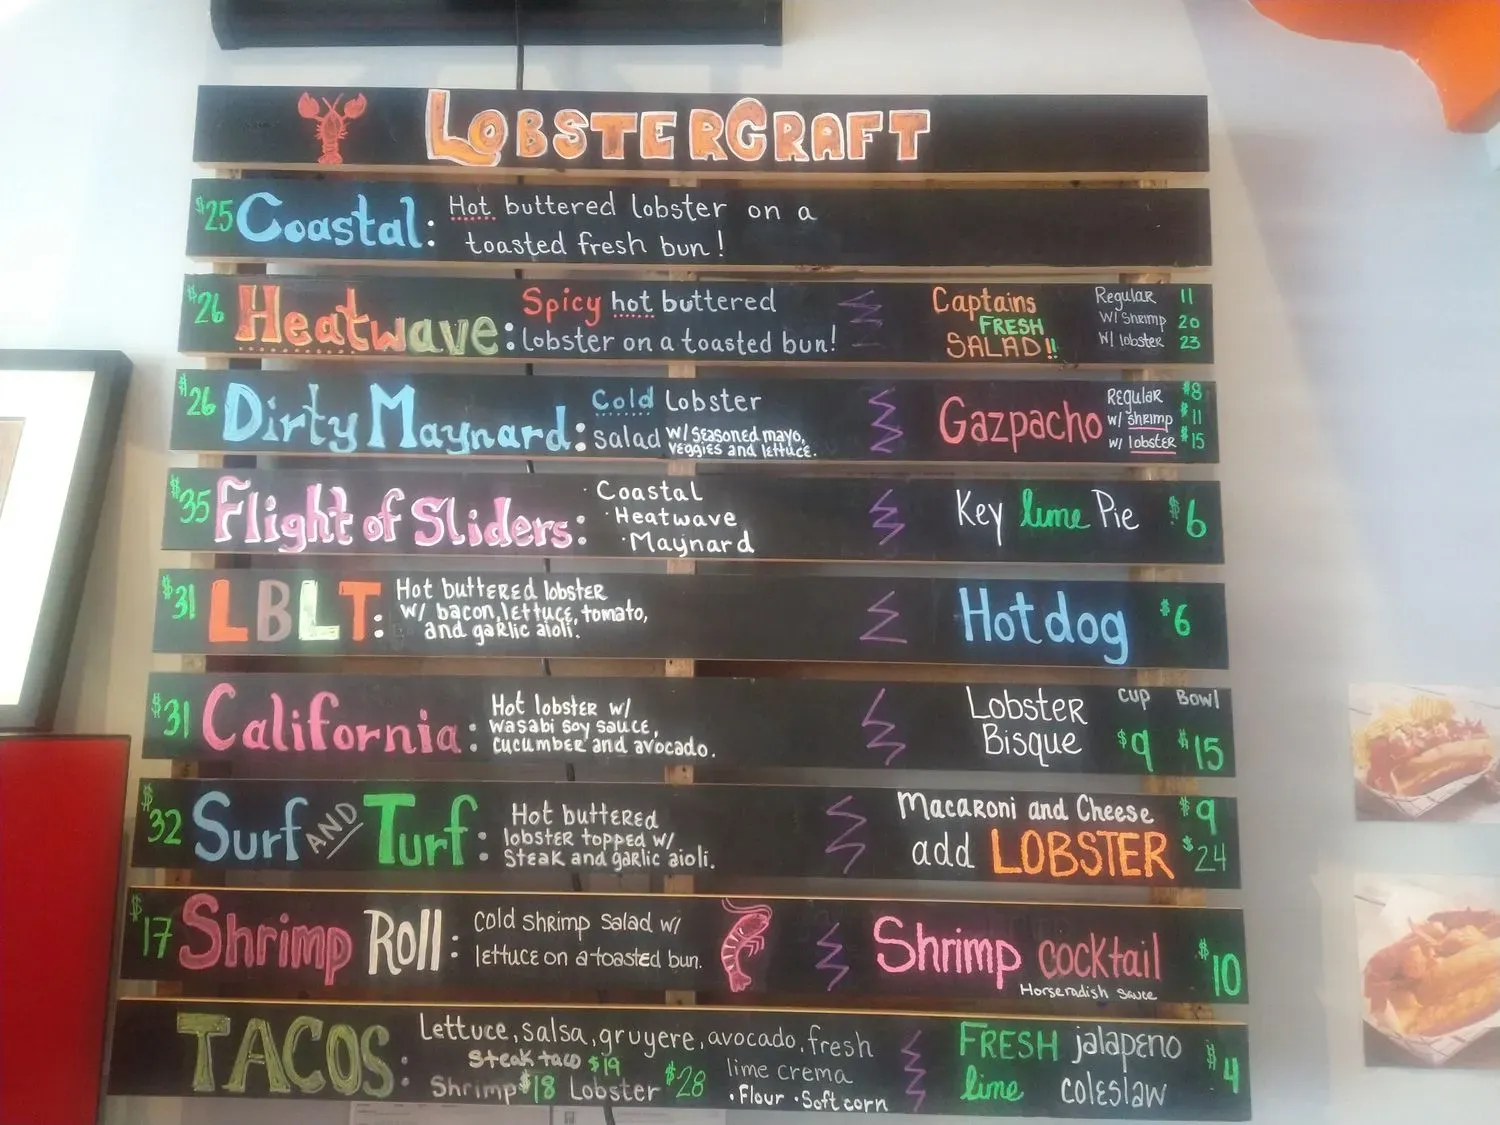 LOBSTERCRAFT
$25 Coastal: Hot buttered lobster on a
toasted fresh bun!
$26 Heatwave: Spicy hot buttered
Lobster on a toasted bun!
Captains
FRESH
SALAD!!
Regular 11
W/ Shrimp 20
W/ lobster 23
$26 Dirty Maynard: Cold Lobster
salad w/ seasoned mayo,
veggies and lettuce.
Gazpacho
Regular $8
w/ shrimp $11
w/ lobster $15
$35 Flight of Sliders:
· Coastal
· Heatwave
· Maynard
Key lime Pie $6
$31 LBLT: Hot buttered lobster
w/ bacon, lettuce, tomato,
and garlic aioli.
Hotdog $6
$31 California: Hot lobster w/
wasabi soy sauce,
cucumber and avocado.
Lobster
Bisque
cup Bowl
$9 $15
$32 Surf AND Turf: Hot buttered
lobster topped w/
steak and garlic aioli.
Macaroni and Cheese $9
add LOBSTER $24
$17 Shrimp Roll: cold shrimp salad w/
lettuce on a toasted bun.
Shrimp cocktail $10
Horseradish sauce
TACOS: Lettuce, salsa, gruyere, avocado, fresh
lime crema
Steak taco $19
Shrimp $18 Lobster $28
· Flour · Soft corn
FRESH jalapeno
lime coleslaw $4